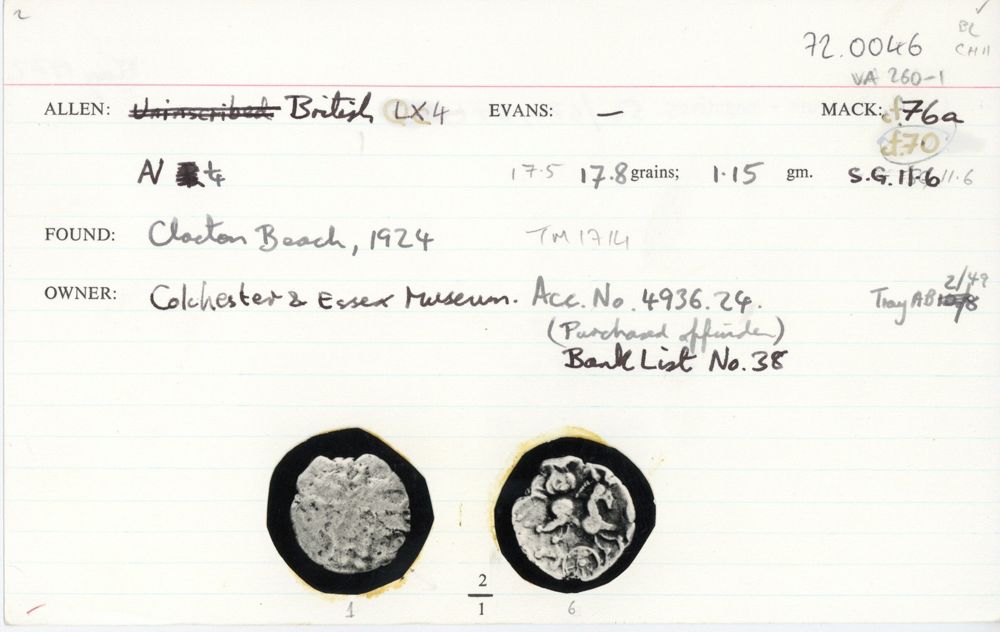 72.0046
BL
CHII
VA 260-1
ALLEN: Uninscribed British LX4 EVANS: — MACK: cf. 76a
cf. 70
AV ¼ 17.5 17.8 grains; 1.15 gm. S.G. 11.6 11.6
FOUND: Clacton Beach, 1924 TM 1714
OWNER: Colchester & Essex Museum. Acc. No. 4936.24. Tray AB 2/49
(Purchased off finder)
Bank List No. 38
2
1 1 6